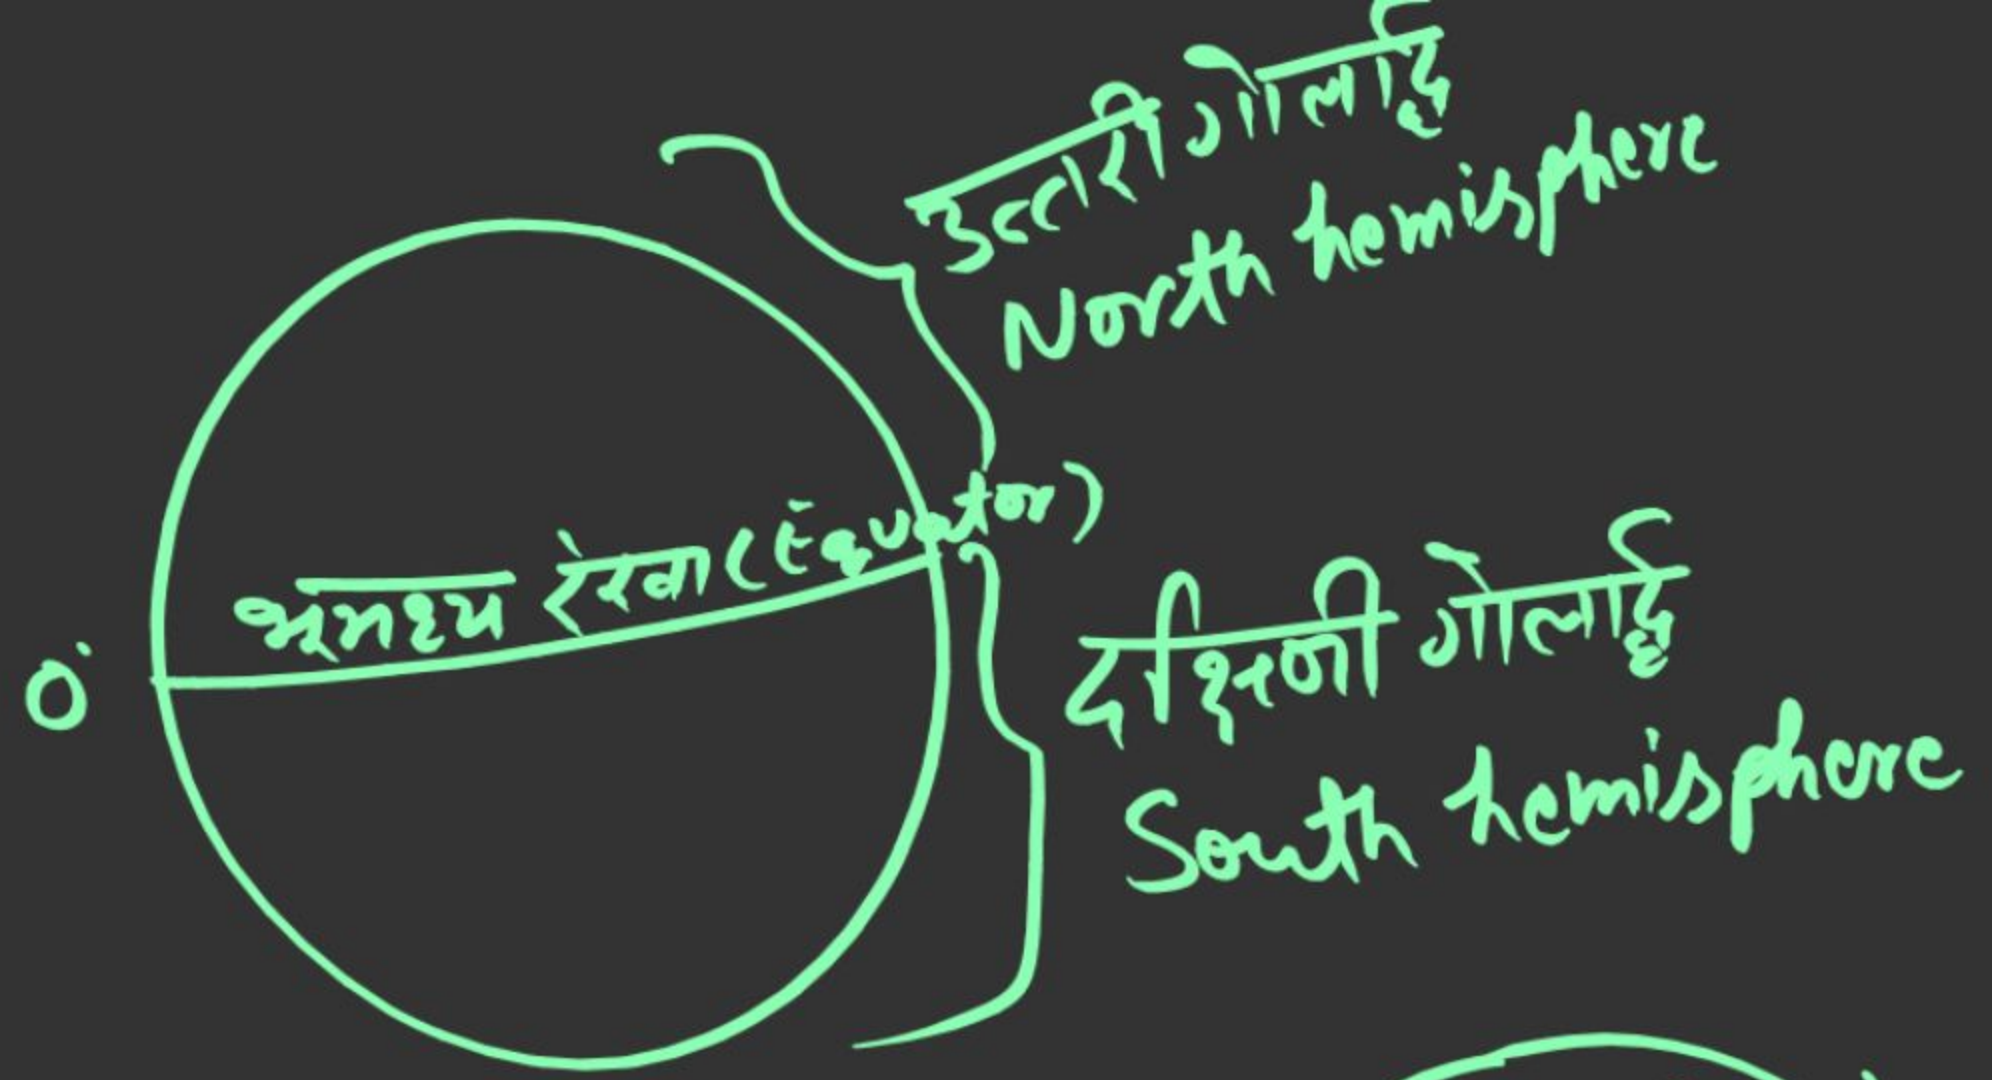 उत्तरी गोलार्द्ध
North hemisphere
भूमध्य रेखा (Equator)
0°
दक्षिणी गोलार्द्ध
South hemisphere